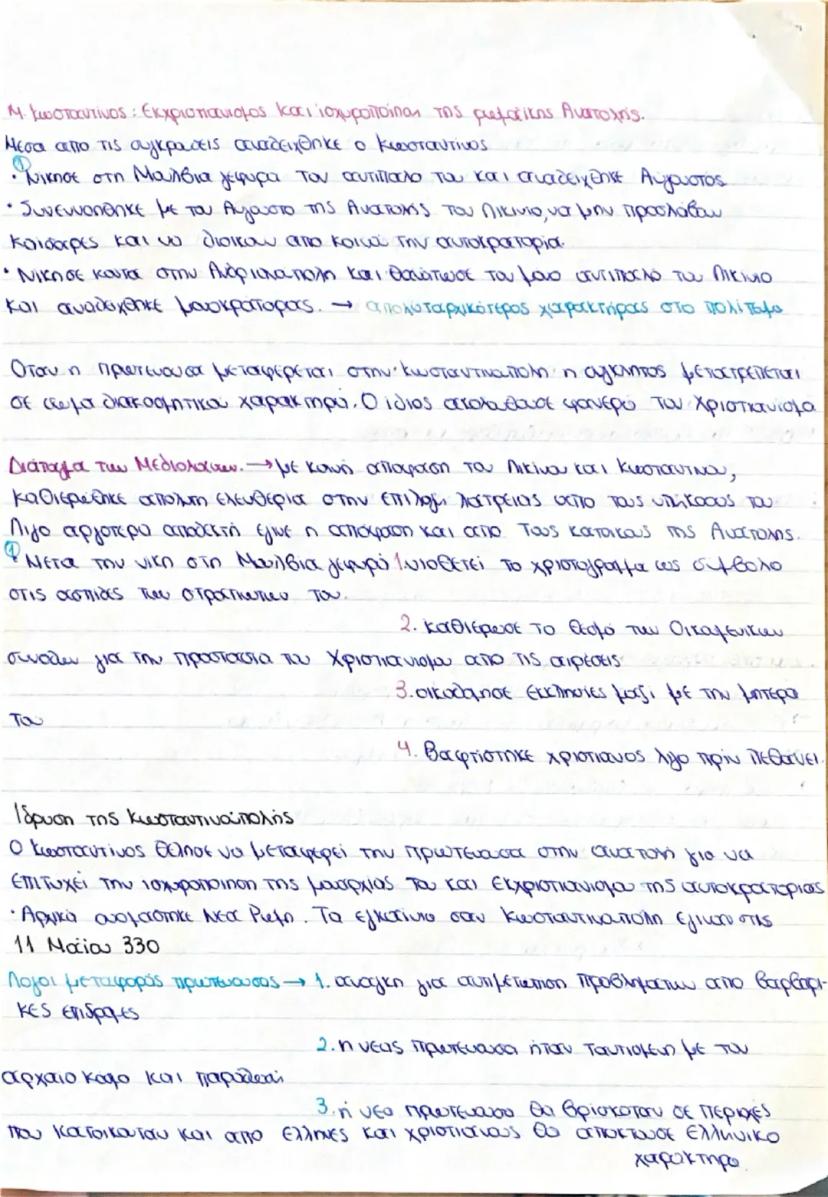 Μ. Κωσταντίνος: Εκχριστιανισμος και ισχυροποίηση της ρωμαϊκης Ανατολής.
Μέσα απο τις συγκρουσεις αναδειχθηκε ο Κωσταντίνος
①
· Νικησε στη Μουλβια γεφυρα τον αντιπαλο του και αναδειχθηκε Αύγουστος
· Συνεννοηθηκε με τον Αυγουστο της Ανατολης τον Λικινιο, να μην προσλάβουν
καισαρες και να διοικουν απο κοινου την αυτοκρατορία.
· Νικησε κοντα στην Ανδριανουπολη και θανατωσε τον μονο αντιπαλό του Λικινιο
και αναδειχθηκε μονοκρατορας. → απολυταρχικότερος χαρακτήρας στο πολίτευμα
Οταν η πρωτευουσα μεταφερεται στην Κωσταντινουπολη η συγκλητος μετατρέπεται
σε σωμα διακοσμητικου χαρακτηρα. Ο ιδιος ακολουθουσε φανερα τον Χριστιανισμο
Διάταγμα των Μεδιολανων. → με κοινή αποφαση του Λικινιου και Κωσταντινου,
καθιερώθηκε απολυτη ελευθερία στην επιλογη λατρειας απο τους υπηκοους του
Λιγο αργοτερα αποδεκτή εγινε η αποφαση και απο τους κατοικους της Ανατολης.
① · Μετα την νικη στη Μουλβια γεφυρα 1. υιοθετεί το χριστογραμμα ως συμβολο
στις ασπιδες των στρατιωτων του.
2. καθιερωσε το θεσμό των Οικουμενικων
συνοδων για την προστασια του Χριστιανισμου απο τις αιρέσεις
3. οικοδομησε εκκλησιες μαζι με την μητερα
του
4. Βαφτίστηκε χριστιανος λιγο πριν πεθανει.
Ιδρυση της Κωσταντινούπολής
Ο Κωσταντίνος θελησε να μεταφερει την πρωτευουσα στην ανατολη για να
επιτυχει την ισχυροποίηση της μοναρχίας του και εκχριστιανισμο της αυτοκρατοριας
· Αρχικα ονομαστηκε Νεα Ρωμη. Τα εγκαίνια σαν Κωσταντινουπολη εγιναν στις
11 Μαϊου 330
Λογοι μεταφοράς πρωτευουσας → 1. αναγκη για αντιμετωπιση προβληματων απο βαρβαρι-
κες επιδρομες
2. η νεας πρωτευουσα ηταν ταυτισμενη με τον
αρχαιο κοσμο και παραδοσή
3. η νεα πρωτευουσα θα βρισκοταν σε περιοχές
που κατοικουνταν και απο Ελληνες και χριστιανους θα αποκτουσε Ελληνικο
χαρακτηρα.